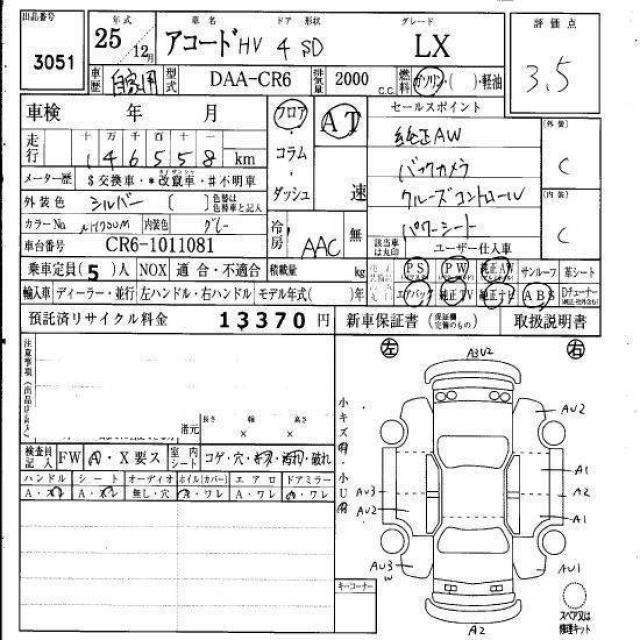 出品番号 年式 車名 ドア 形状 グレード 評価点
3051 25 12月 アコードHV 4 SD LX 3.5
車歴 自家用 型式 DAA-CR6 排気量 2000 C.C. 燃料 ガソリン・( )・軽油
車検 年 月 フロア AT セールスポイント
十 万 千 百 十 一
走行 146558 km コラム 純正AW 【外装】 C
メーター歴 $交換車・*改竄車・#不明車 ダッシュ 速 バックカメラ
外装色 シルバー ( ) 色替は色替車と記入 クルーズコントロール 【内装】 C
カラーNo NH700M 内装色 グレー 冷房 AAC 無 パワーシート
車台番号 CR6-1011081 該当車は丸印 ユーザー仕入車
乗車定員(5)人 NOX 適合・不適合 積載量 kg PS PW 純正AW サンルーフ 革シート
輸入車 ディーラー・並行 左ハンドル・右ハンドル モデル年式( )年 エアバック 純正TV 純正ナビ ABS Dチューナー
預託済リサイクル料金 13370円 新車保証書 (保証欄完備のもの) 取扱説明書
注意事項
左 右
A3U2
AU2
小キズ有・小U有
諸元 長さ × 幅 × 高さ
検査員記入 FW A・X要ス 室内シート コゲ・穴・キズ・汚れ・破れ
ハンドル シート オーディオ ホイル(カバー) エアロ ドアミラー
A・スレ A・スレ 無し・穴 A・ワレ A・ワレ A・ワレ
A1
AU3 A2
AU2 A1
AU3 AU1
W
キーコーナー
スペア又は修理キット
A2